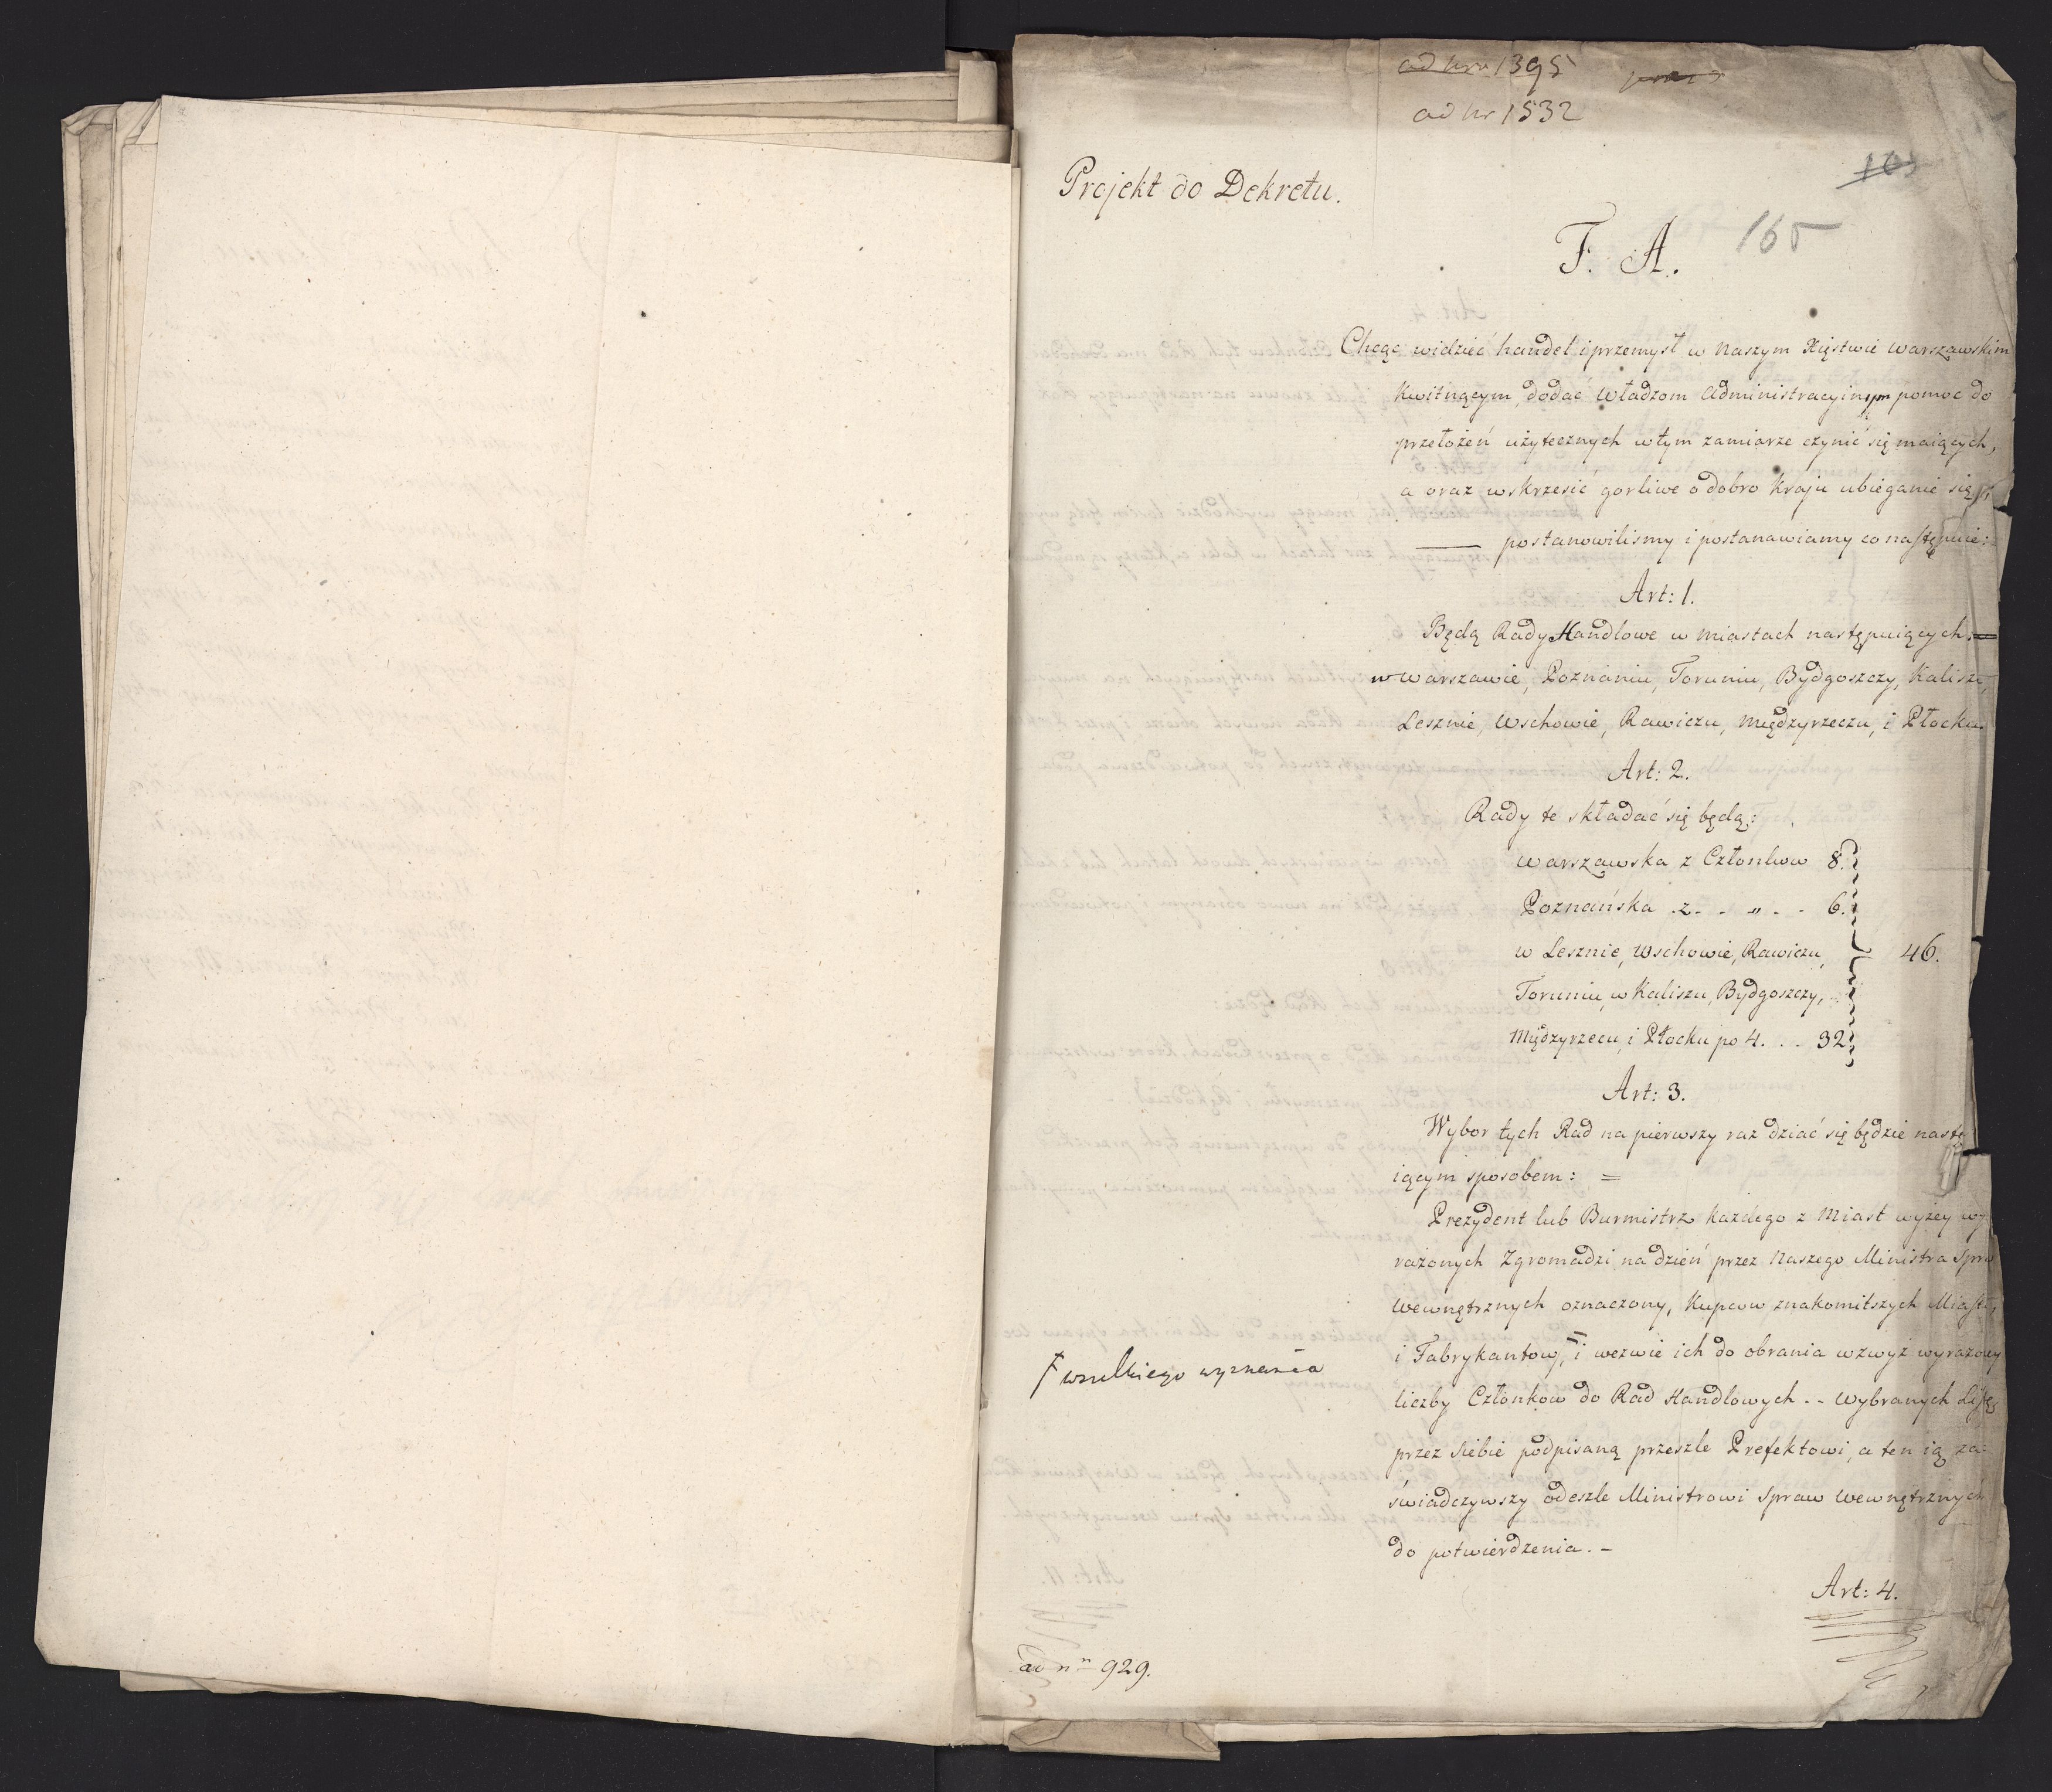 ad nr 1395
ad nr 1532
Projekt do Dekretu.
165
F. A.
Chcąc widzieć handel i przemysł w Naszym Xięstwie Warszawskim
kwitnącym, dodać Władzom Administracyinym pomoc do
przełożeń użytecznych w tym zamiarze czynić się maiących,
a oraz wskrzesić gorliwe o dobro Kraju ubieganie się,
postanowilismy i postanawiamy co następuie:
Art: 1.
Będą Rady Handlowe w Miastach następuiących: =
w Warszawie, Poznaniu, Toruniu, Bydgoszczy, Kaliszu,
Lesznie, Wschowie, Rawiczu, Międzyrzeczu, i Płocku.
Art: 2.
Rady te składać się będą:
Warszawska z Członkow 8.
Poznańska .z. - - „ - - 6.
w Lesznie, Wschowie, Rawiczu, 46.
Toruniu, w Kaliszu, Bydgoszczy,
Międzyrzecu, i Płocku po 4. . . 32.
Art: 3.
Wybor tych Rad na pierwszy raz dziać się będzie nastę
iącym sposobem: =
Prezydent lub Burmistrz każdego z Miast wyżey wy
rażonych Zgromadzi na dzień przez Naszego Ministra Spra
Wewnętrznych oznaczony, Kupcow znakomitszych Miasta,
i Fabrykantow, i wezwie ich do obrania wzwyż wyrażoney
† wszelkiego wyznania
liczby Członkow do Rad Handlowych. - Wybranych Listę
przez siebie podpisaną przeszle Prefektowi, a ten ią za-
świadczywszy odeszle Ministrowi Spraw Wewnętrznych
do potwierdzenia. -
Art: 4.
ad nr 929.